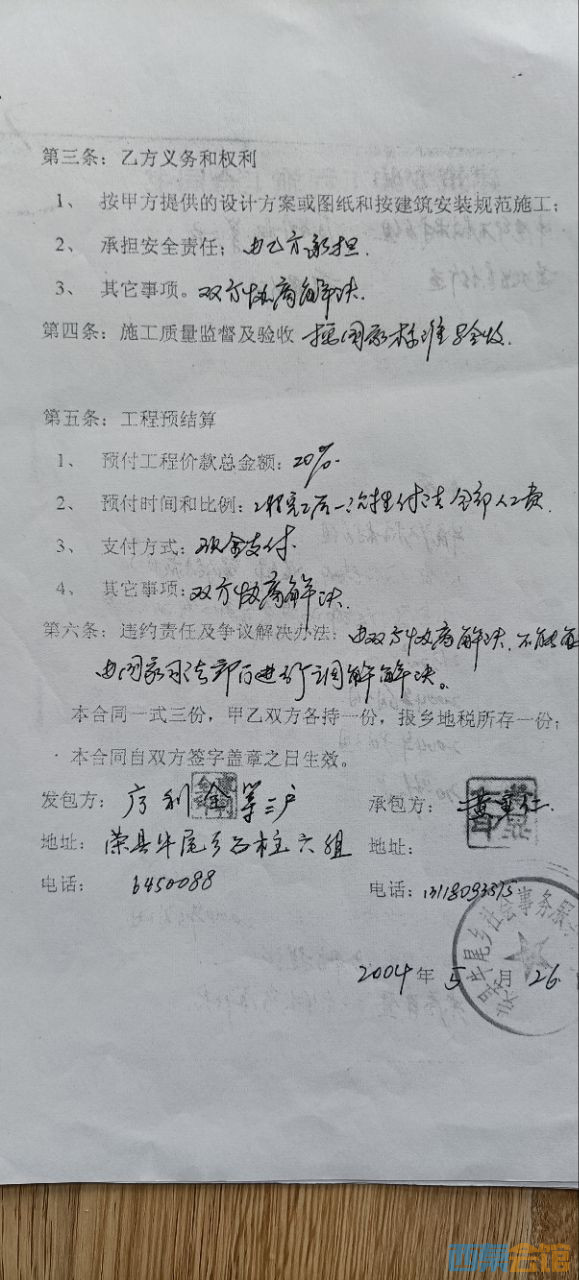 第三条：乙方义务和权利
1、 按甲方提供的设计方案或图纸和按建筑安装规范施工；
2、 承担安全责任；由乙方承担.
3、 其它事项。双方协商解决.
第四条：施工质量监督及验收 按国家标准验收.
第五条：工程预结算
1、 预付工程价款总金额：20%.
2、 预付时间和比例：工程完工后一次性付清全部人工费.
3、 支付方式：现金支付.
4、 其它事项：双方协商解决.
第六条：违约责任及争议解决办法：由双方协商解决.不能
由国家司法部门进行调解解决。
本合同一式三份，甲乙双方各持一份，报乡地税所存一份；
本合同自双方签字盖章之日生效。
发包方： 利金等三户 承包方：
地址： 荣县牛尾乡石柱六组 地址：
电话： 6450088 电话：
2004年5月26.
牛尾乡社会事务服
西祠会馆